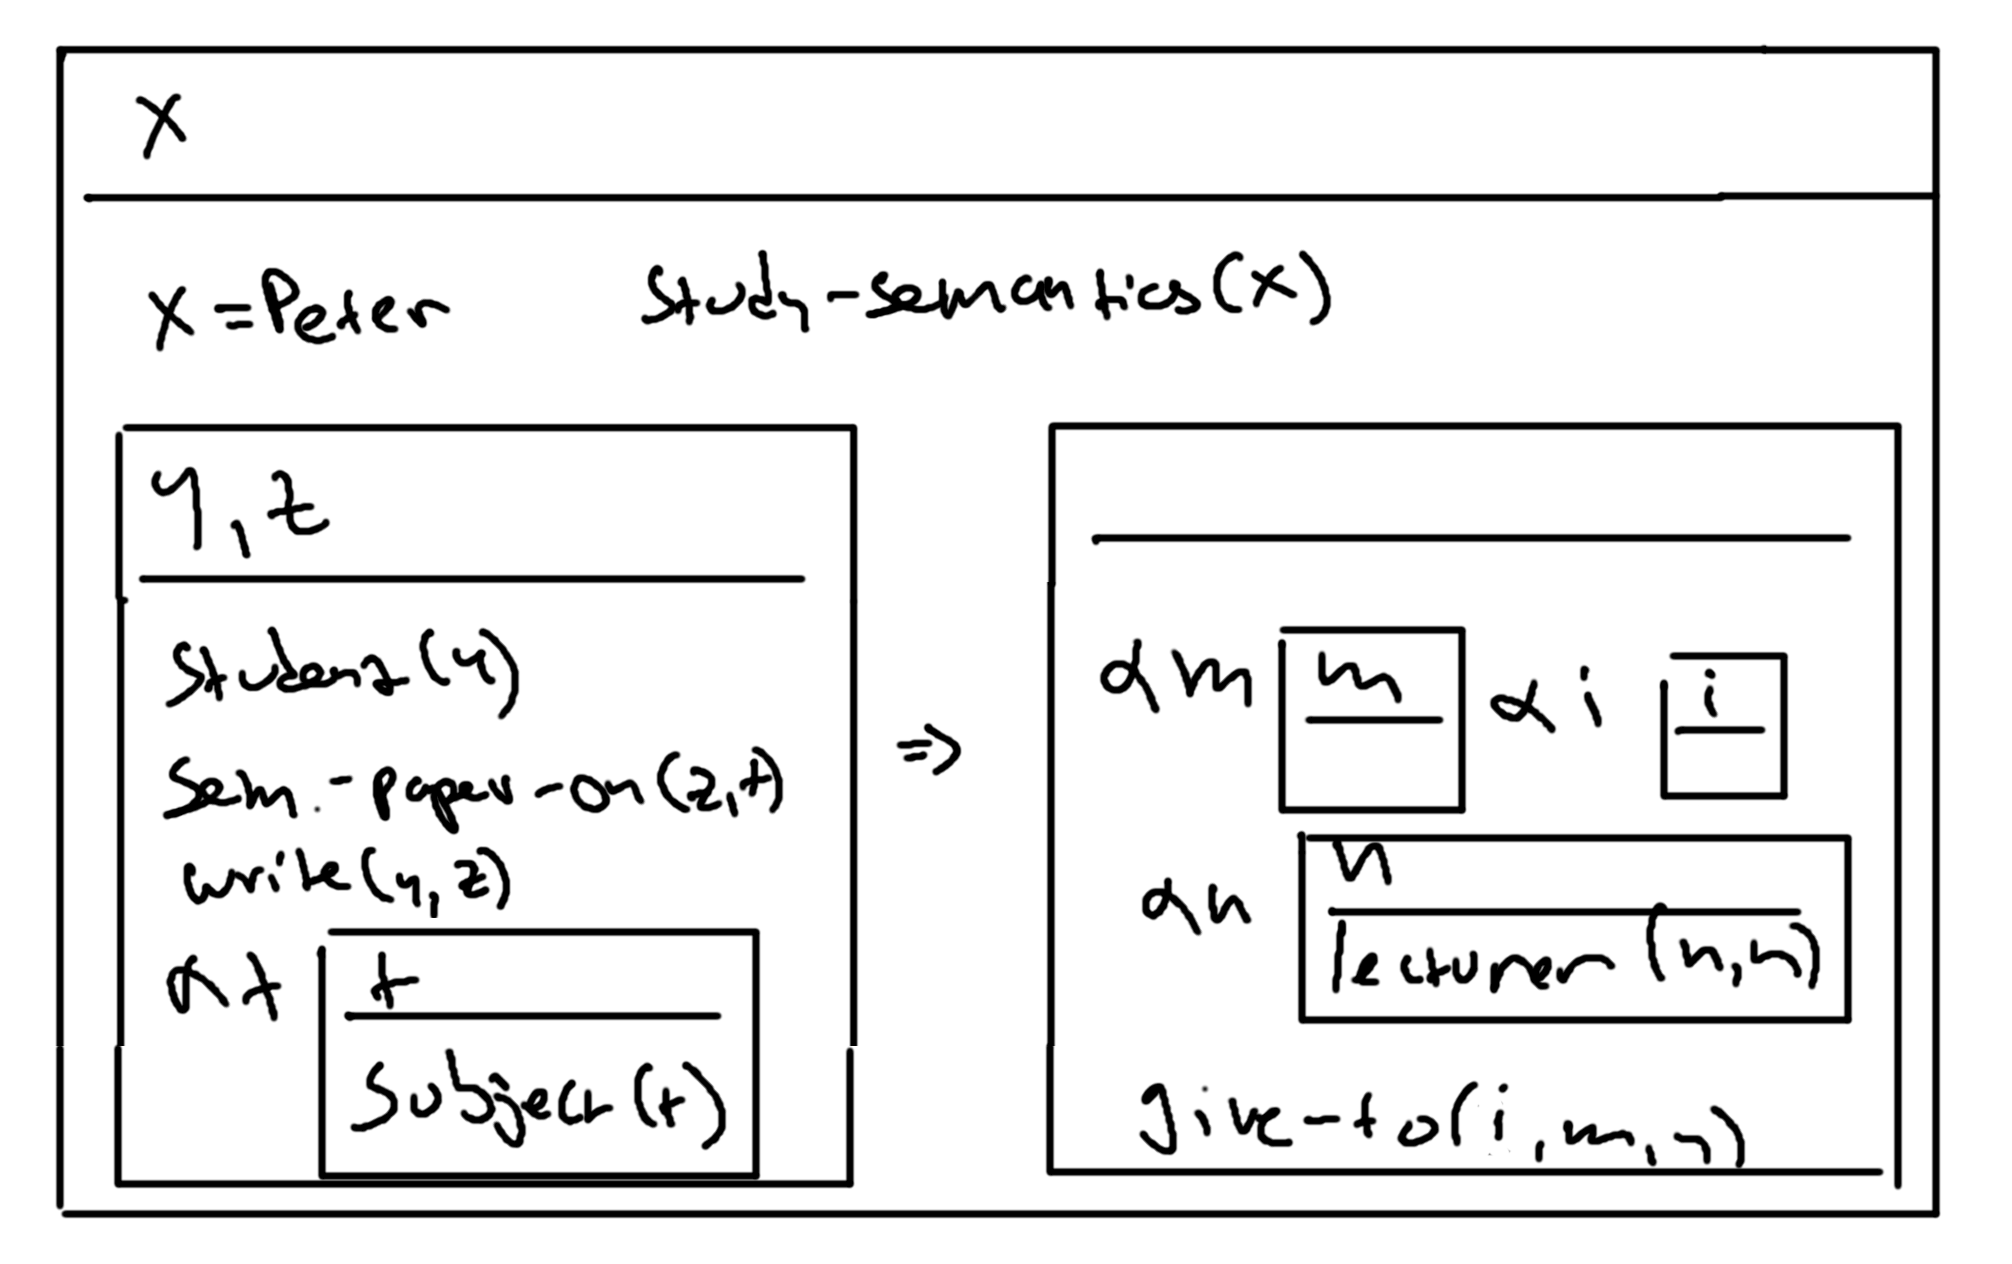 x
x = Peter study-semantics(x)
y, z
student(y)
sem.-paper-on(z,t)
write(y,z)
αt t
subject(t)
⇒
αm m αi i
αn n
lecturer(n,n)
give-to(i,m,n)